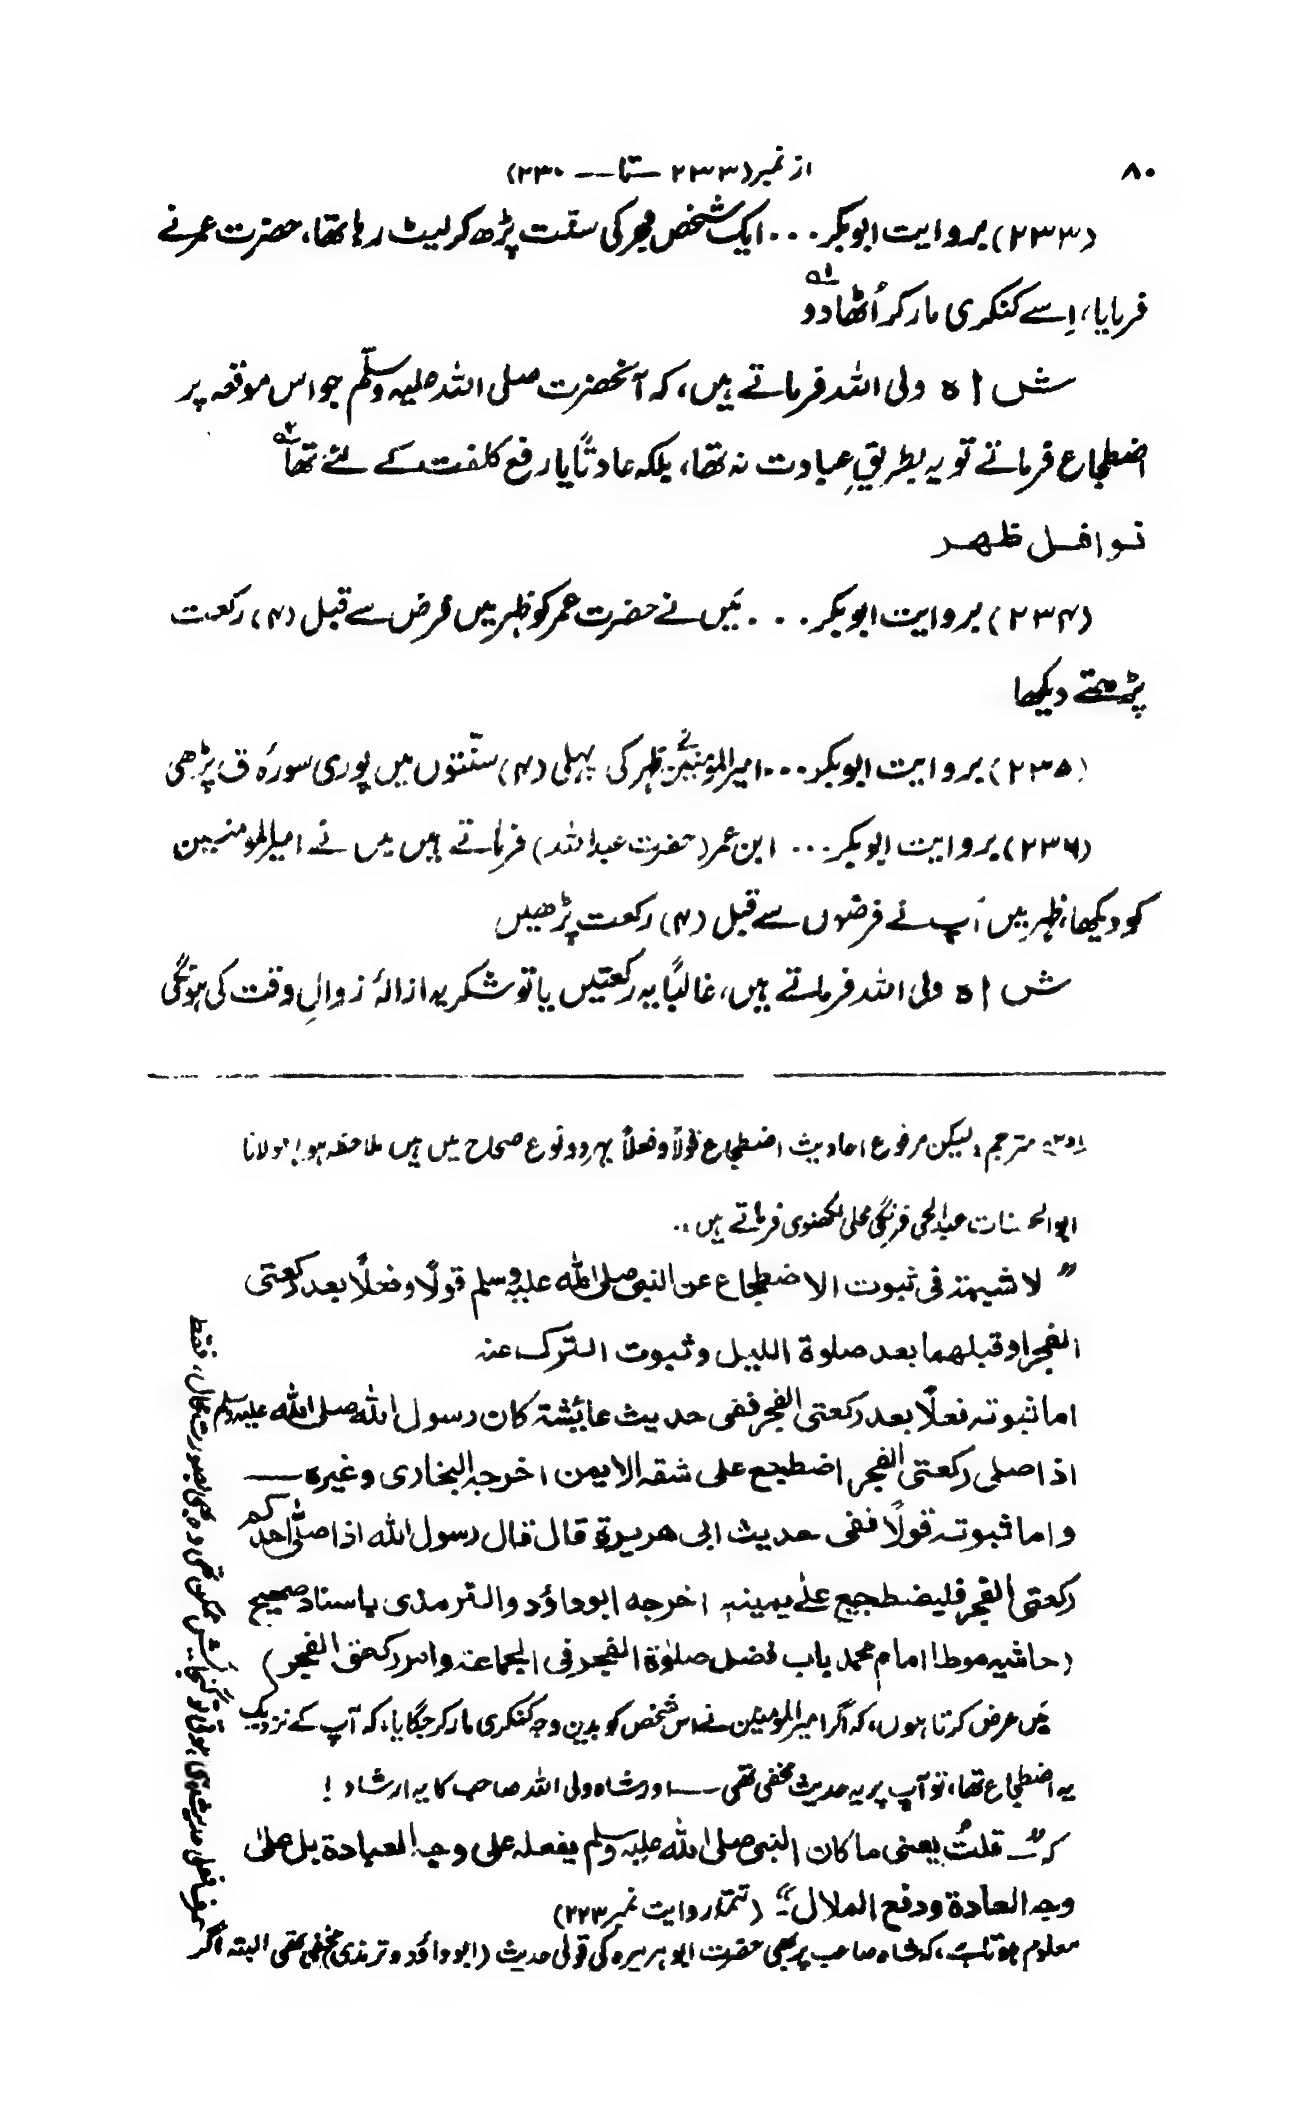 ۸۰
از نمبر (۲۳۳ — تا — ۲۳۰)
(۲۳۳) بروایت ابوبکر ... ایک شخص فجر کی سنّت پڑھ کر لیٹ رہا تھا، حضرت عمر نے
فرمایا، اِسے کنکری مار کر اُٹھا دو
شاہ ولی اللہ فرماتے ہیں، کہ آنحضرت صلی اللہ علیہ وسلّم جو اس موقعہ پر
اضطجاع فرماتے تو یہ بطریقِ عبادت نہ تھا، بلکہ عادتًا یا رفع کلفت کے لئے تھا
نوافل ظہر
(۲۳۴) بروایت ابوبکر ... مَیں نے حضرت عمر کو ظہر میں فرض سے قبل (۴) رکعت
پڑھتے دیکھا
(۲۳۵) بروایت ابوبکر ... امیر المؤمنین نے ظہر کی پہلی (۴) سنّتوں میں پوری سورہ ق پڑھی
(۲۳۶) بروایت ابوبکر ... ابن عمر (حضرت عبداللہ) فرماتے ہیں میں نے امیر المومنین
کو دیکھا، ظہر میں آپ نے فرضوں سے قبل (۴) رکعت پڑھیں
شاہ ولی اللہ فرماتے ہیں، غالبًا یہ رکعتیں یا تو شکریہ ازالۂ زوالِ وقت کی ہونگی
مترجم: لیکن مرفوع احادیث اضطجاع قولاً و فعلاً بہر دو نوع صحاح میں ہیں ملاحظہ ہو! مولانا
ابو الحسنات عبدالحی فرنگی محلی لکھنوی فرماتے ہیں :.
" لا شبهة فی ثبوت الاضطجاع عن النبی صلی اللہ علیہ وسلم قولًا و فعلًا بعد رکعتی
الفجر او قبلهما بعد صلوة اللیل و ثبوت الترک عنہ
اما ثبوتہ فعلًا بعد رکعتی الفجر ففی حدیث عائشۃ کان رسول اللہ صلی اللہ علیہ وسلم
اذا صلی رکعتی الفجر اضطجع علی شقہ الایمن اخرجہ البخاری وغیرہ —
و اما ثبوتہ قولًا ففی حدیث ابی هریرة قال قال رسول اللہ اذا صلّی احدکم
رکعتی الفجر فلیضطجع علی یمینہ اخرجه ابوداؤد والترمذی باسناد صحیح
(حاشیہ موطا امام محمد باب فضل صلوٰة الفجر فی الجماعۃ و امر رکعتی الفجر)
مَیں عرض کرتا ہوں، کہ اگر امیر المومنین نے اس شخص کو بدین وجہ کنکری مار کر جگایا، کہ آپ کے نزدیک
یہ اضطجاع تھا، تو آپ پر یہ حدیث مخفی تھی — اور شاہ ولی اللہ صاحب کا یہ ارشاد !
کہ " قلتُ یعنی ما کان النبی صلی اللہ علیہ وسلم یفعلہ علی وجہ العبادة بل علیٰ
وجہ العادة و دفع الملال" (تتمہ روایت نمبر ۲۲۳)
معلوم ہوتا ہے، کہ شاہ صاحب پر بھی حضرت ابوہریرہ کی قولی حدیث (ابوداؤد و ترمذی) مخفی تھی البتہ اگر
صرف فعلی حدیث ہی ہوتی تو گنجایش ممکن تھی وہ بھی بصورت محال، فقط